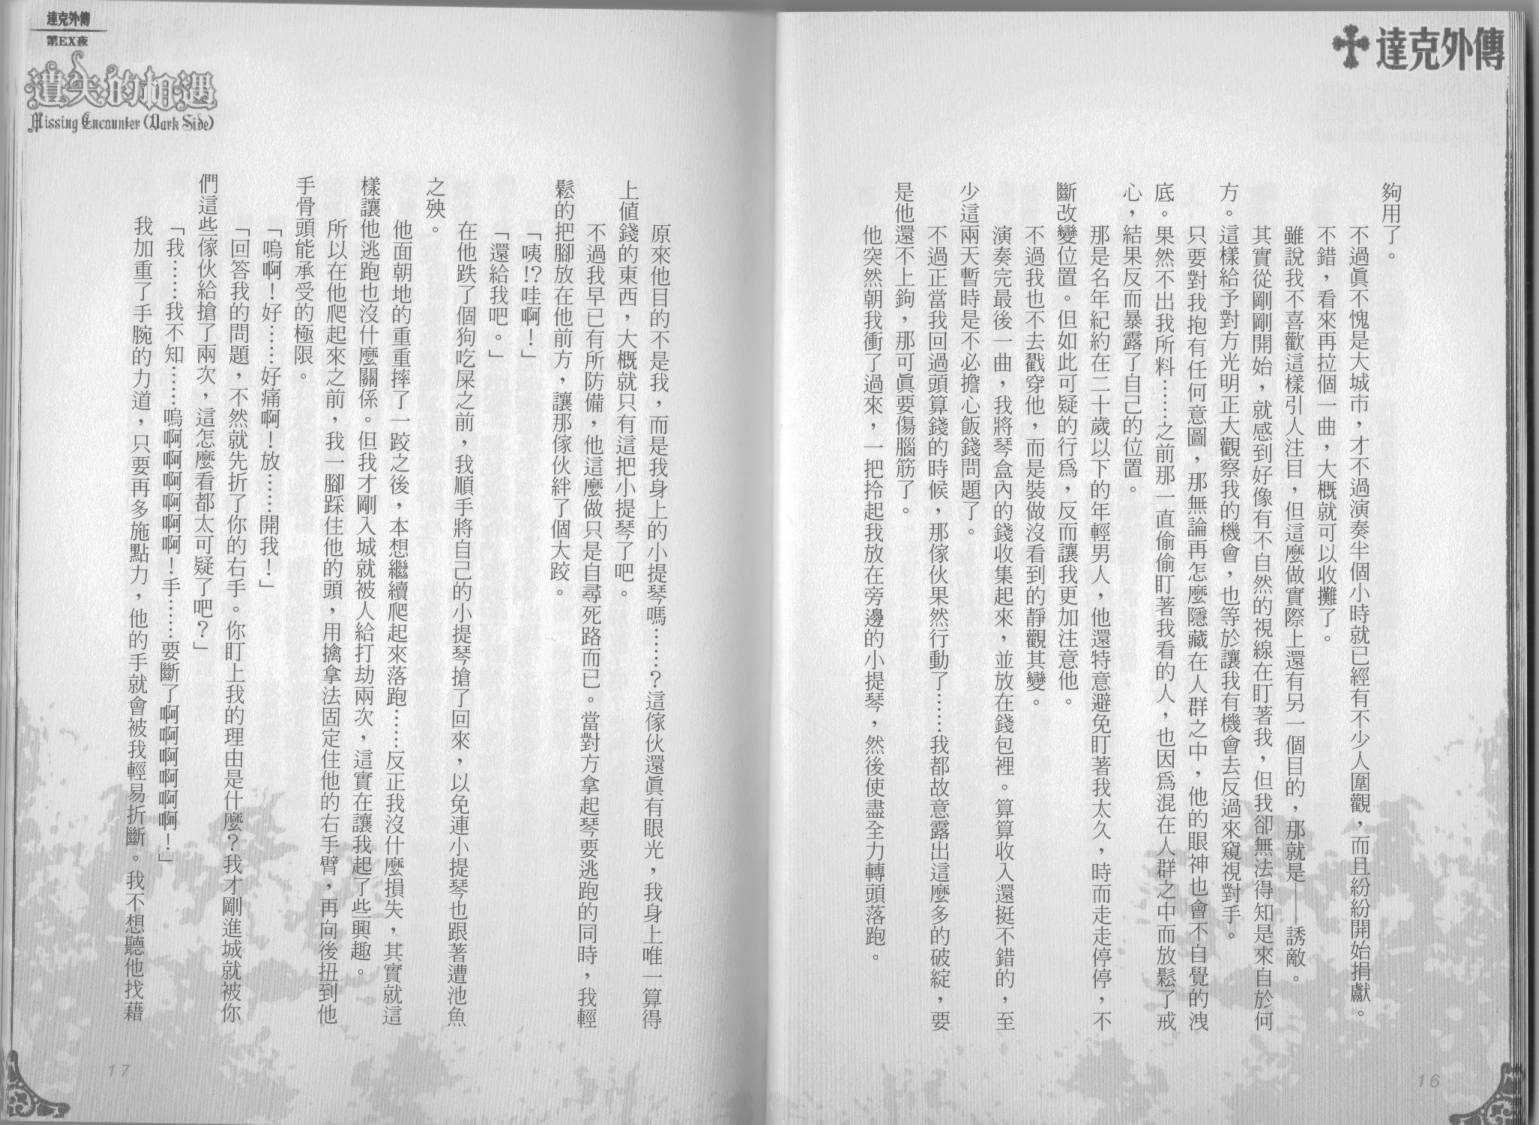 達克外傳
夠用了。
不過真不愧是大城市，才不過演奏半個小時就已經有不少人圍觀，而且紛紛開始捐獻。
不錯，看來再拉個一曲，大概就可以收攤了。
雖說我不喜歡這樣引人注目，但這麼做實際上還有另一個目的，那就是——誘敵。
其實從剛剛開始，就感到好像有不自然的視線在盯著我，但我卻無法得知是來自於何
方。這樣給予對方光明正大觀察我的機會，也等於讓我有機會去反過來窺視對手。
只要對我抱有任何意圖，那無論再怎麼隱藏在人群之中，他的眼神也會不自覺的洩
底。果然不出我所料……之前那一直偷偷盯著我看的人，也因為混在人群之中而放鬆了戒
心，結果反而暴露了自己的位置。
那是名年紀約在二十歲以下的年輕男人，他還特意避免盯著我太久，時而走走停停，不
斷改變位置。但如此可疑的行為，反而讓我更加注意他。
不過我也不去戳穿他，而是裝做沒看到的靜觀其變。
演奏完最後一曲，我將琴盒內的錢收集起來，並放在錢包裡。算算收入還挺不錯的，至
少這兩天暫時是不必擔心飯錢問題了。
不過正當我回過頭算錢的時候，那傢伙果然行動了……我都故意露出這麼多的破綻，要
是他還不上鉤，那可真要傷腦筋了。
他突然朝我衝了過來，一把拎起我放在旁邊的小提琴，然後使盡全力轉頭落跑。
16
達克外傳
第EX夜
遺失的相遇
Missing Encounter (Dark Side)
原來他目的不是我，而是我身上的小提琴嗎……？這傢伙還真有眼光，我身上唯一算得
上值錢的東西，大概就只有這把小提琴了吧。
不過我早已有所防備，他這麼做只是自尋死路而已。當對方拿起琴要逃跑的同時，我輕
鬆的把腳放在他前方，讓那傢伙絆了個大跤。
「咦!?哇啊！」
「還給我吧。」
在他跌了個狗吃屎之前，我順手將自己的小提琴搶了回來，以免連小提琴也跟著遭池魚
之殃。
他面朝地的重重摔了一跤之後，本想繼續爬起來落跑……反正我沒什麼損失，其實就這
樣讓他逃跑也沒什麼關係。但我才剛入城就被人給打劫兩次，這實在讓我起了些興趣。
所以在他爬起來之前，我一腳踩住他的頭，用擒拿法固定住他的右手臂，再向後扭到他
手骨頭能承受的極限。
「嗚啊！好……好痛啊！放……開我！」
「回答我的問題，不然就先折了你的右手。你盯上我的理由是什麼？我才剛進城就被你
們這些傢伙給搶了兩次，這怎麼看都太可疑了吧？」
「我……我不知……嗚啊啊啊啊啊啊！手……要斷了啊啊啊啊啊啊！」
我加重了手腕的力道，只要再多施點力，他的手就會被我輕易折斷。我不想聽他找藉
17